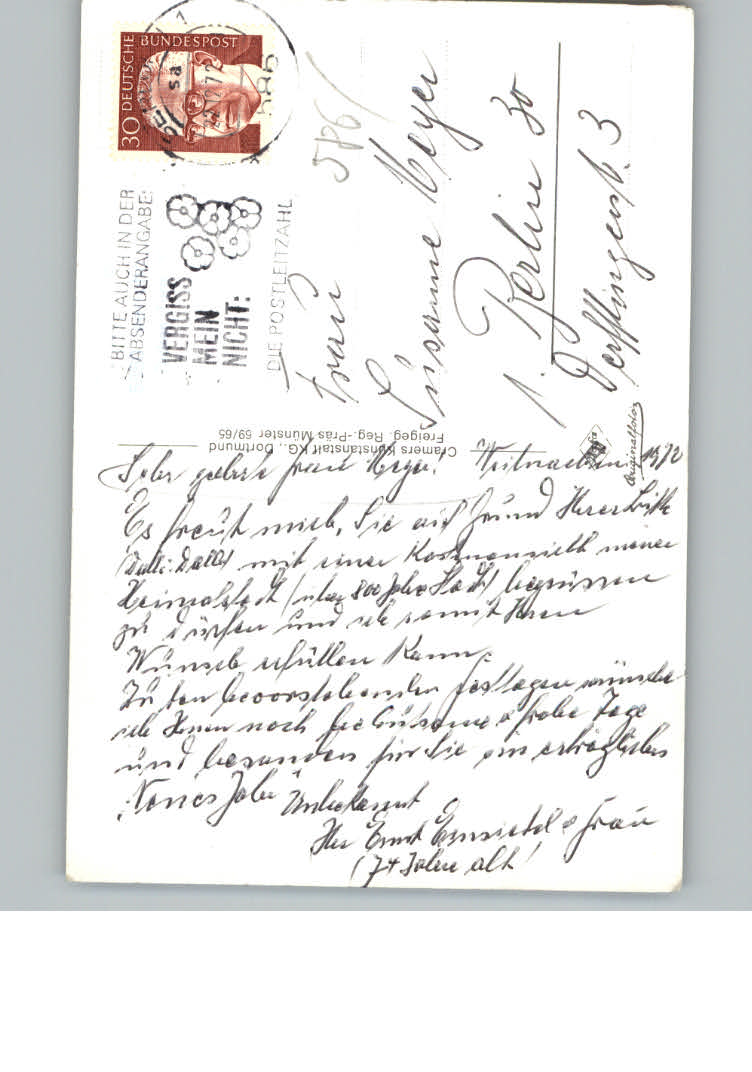 30 DEUTSCHE BUNDESPOST
586
BITTE AUCH IN DER
ABSENDERANGABE:
VERGISS
MEIN
NICHT:
DIE POSTLEITZAHL
586/
Frau
Susanne Meyer
1 Berlin 30
Derfflingerstr. 3
Cramers Kunstanstalt KG., Dortmund
Freigeg. Reg.-Präs Münster 59/65
Originalfoto
Sehr geehrte Frau Meyer! Weihnachten 1972
Es freut mich, Sie auf Grund Ihrer Bitte
(Dalli Dalli) mit einer Kostenansicht meiner
Heimatstadt (über 800 Jahre Stadt) begrüssen
zu dürfen und ich somit Ihren
Wunsch erfüllen kann.
Zu den bevorstehenden Festtagen wünsche
ich Ihnen noch frohe Tage
und besonders für Sie ein erträgliches
"Neues Jahr" Unbekannt
Ihr Ernst & Frau
(74 Jahre alt)